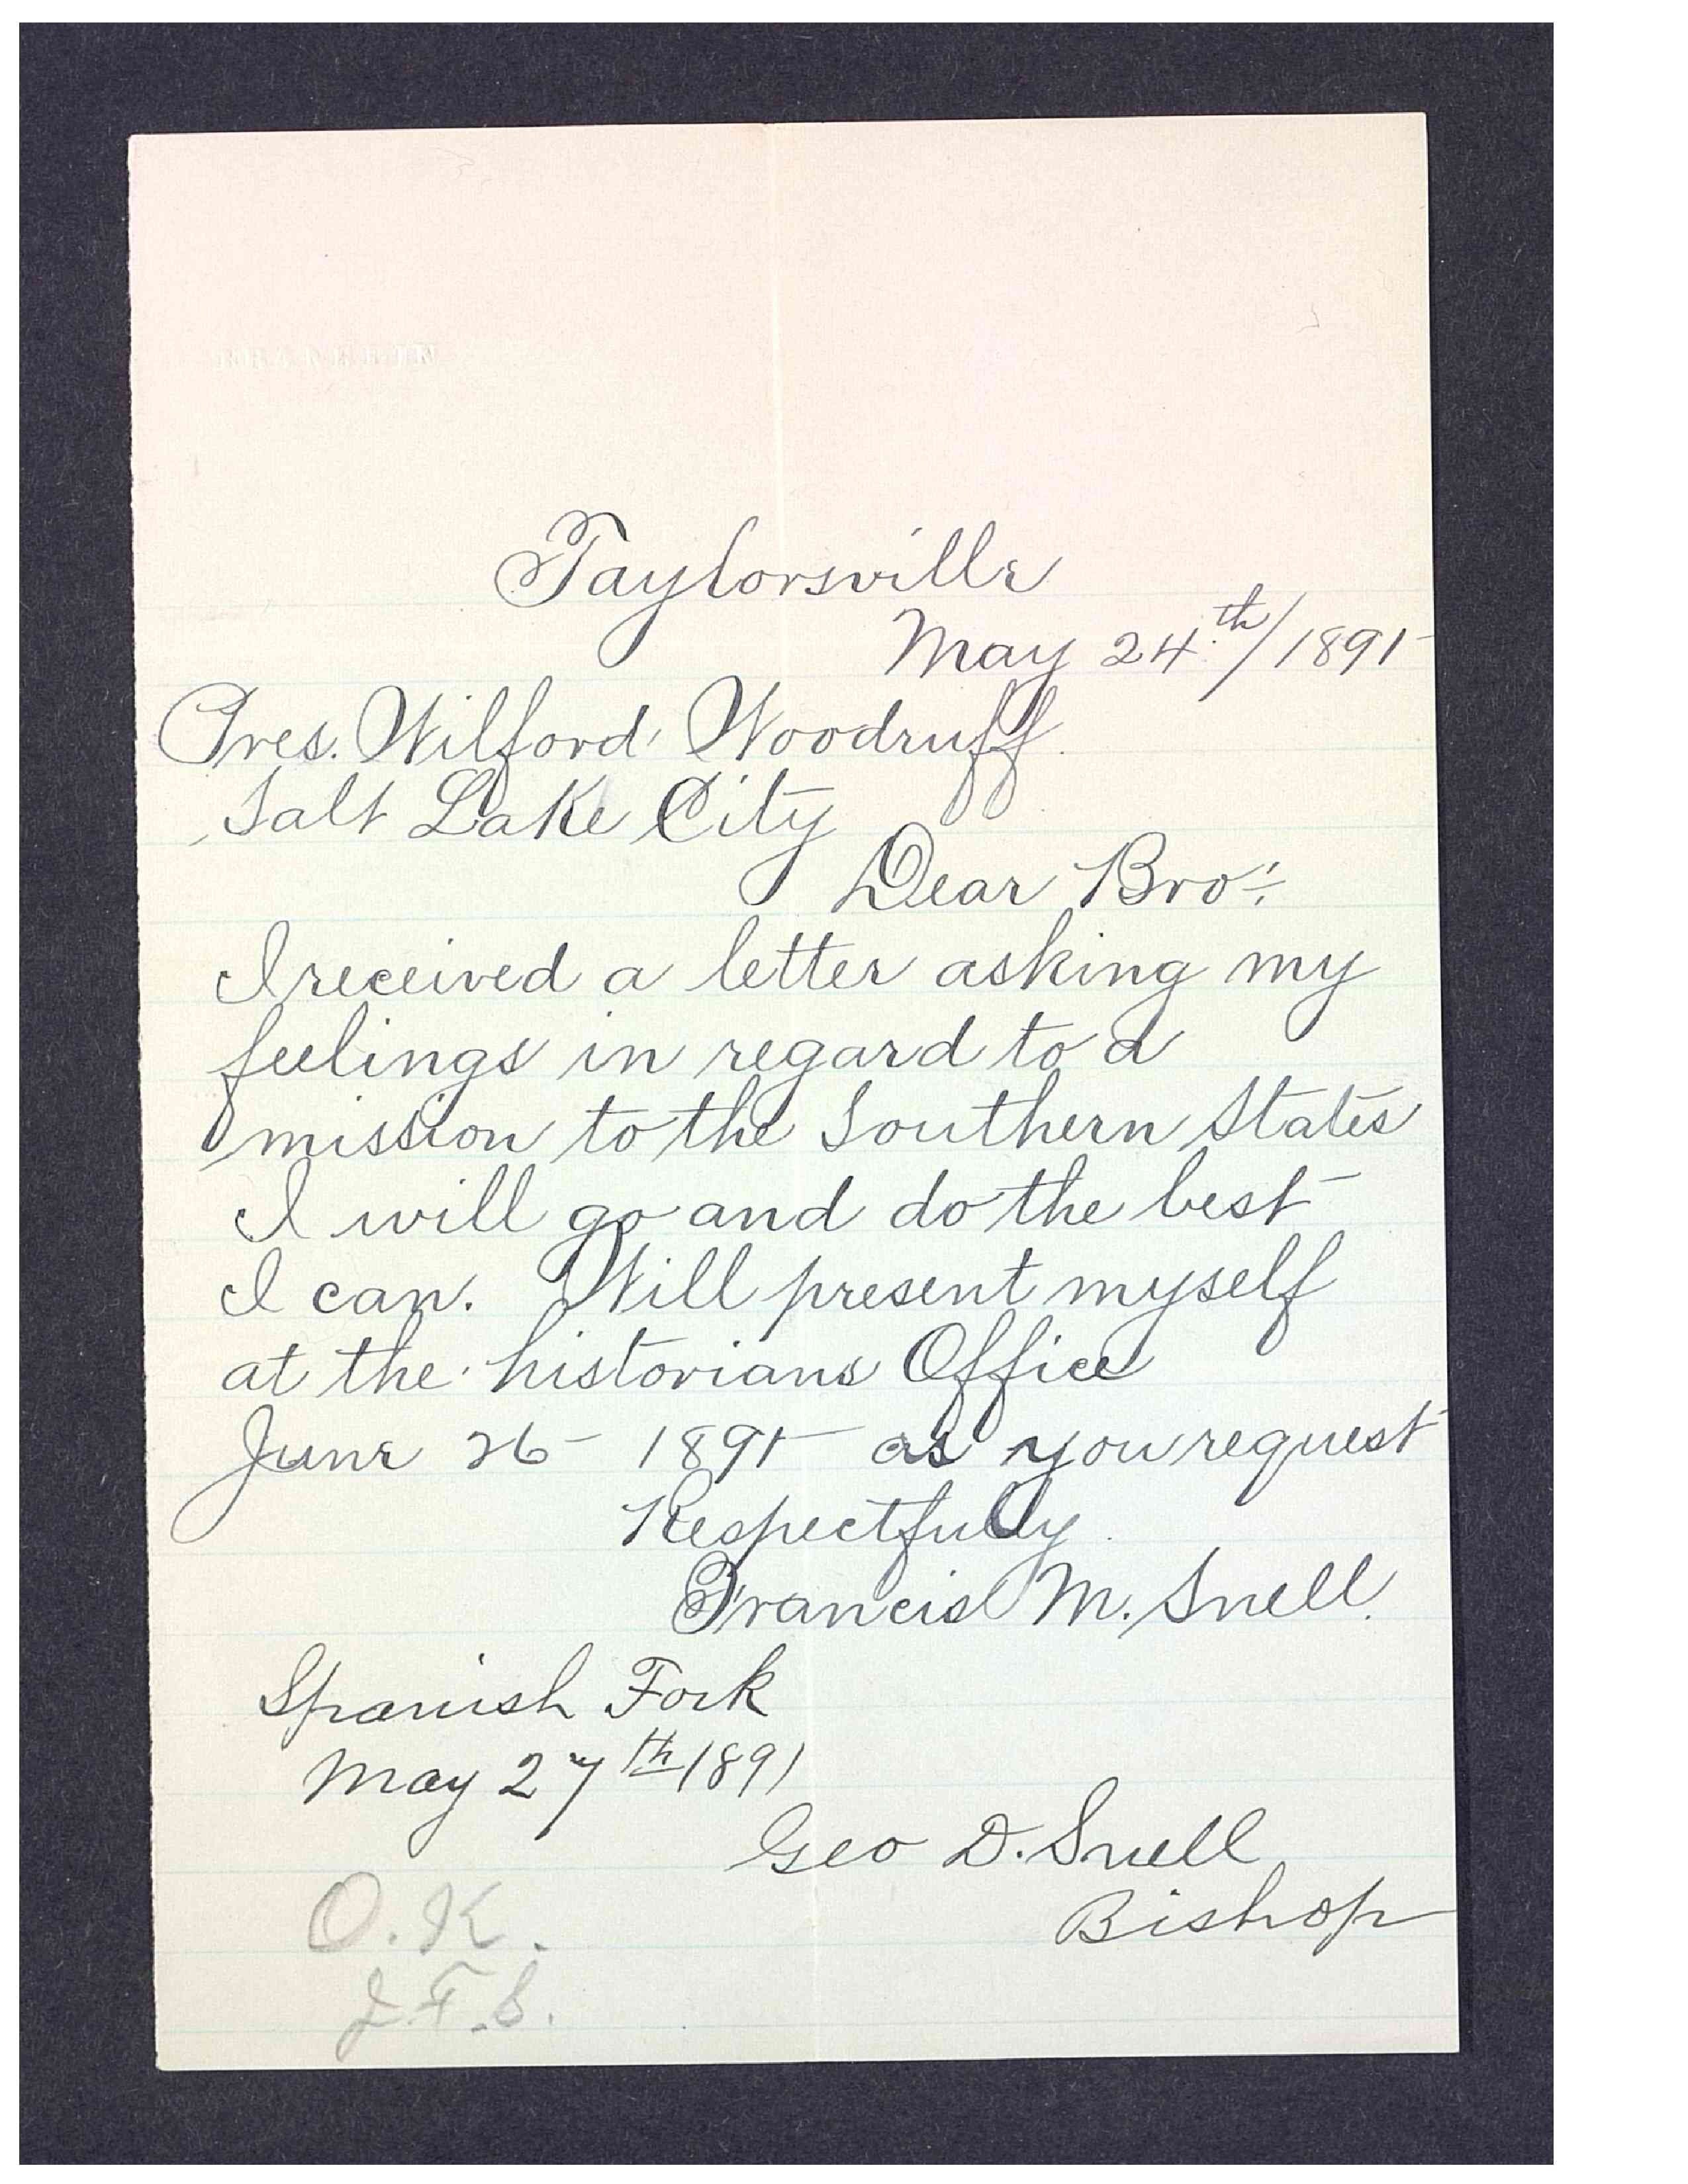 Taylorsville
May 24th/1891
Pres. Wilford Woodruff
Salt Lake City
Dear Bro:
I received a letter asking my
feelings in regard to a
mission to the Southern States
I will go and do the best
I can. Will present myself
at the historians Office
June 26 - 1891 as you request
Respectfully
Francis M. Snell.
Spanish Fork
May 27th 1891
Geo D. Snell
Bishop
O.K.
J.F.S.